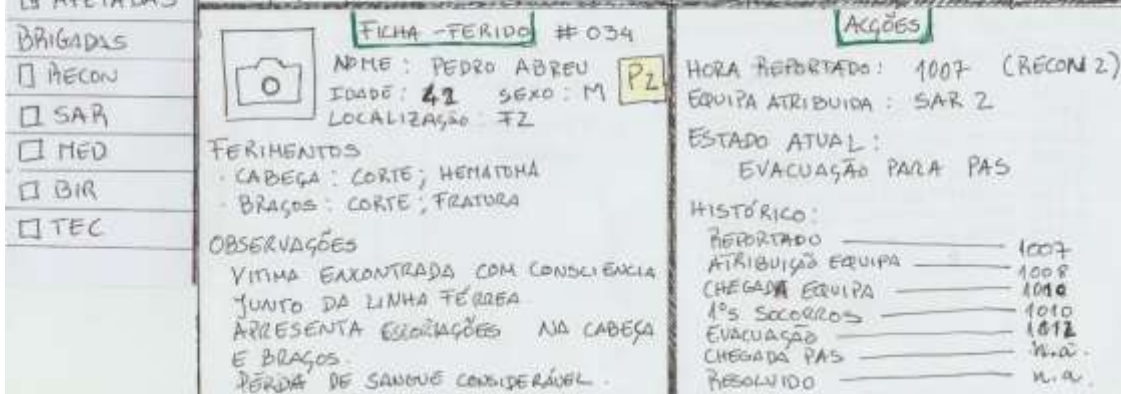 AFETADAS
BRIGADAS
RECON
SAR
MED
BIR
TEC
FICHA - FERIDO # 034
NOME : PEDRO ABREU
P2
IDADE : 42 SEXO : M
LOCALIZAÇÃO : F2
FERIMENTOS
· CABEÇA : CORTE ; HEMATOMA
· BRAÇOS : CORTE ; FRATURA
OBSERVAÇÕES
VITIMA ENXONTRADA COM CONSCIENCIA
JUNTO DA LINHA FÉRREA.
APRESENTA ESCORIAÇÕES NA CABEÇA
E BRAÇOS.
PERDA DE SANGUE CONSIDERÁVEL.
ACÇÕES
HORA REPORTADO : 1007 (RECON 2)
EQUIPA ATRIBUIDA : SAR 2
ESTADO ATUAL :
EVACUAÇÃO PARA PAS
HISTÓRICO :
REPORTADO 1007
ATRIBUIÇÃO EQUIPA 1008
CHEGADA EQUIPA 1010
1ºs SOCORROS 1010
EVACUAÇÃO 1012
CHEGADA PAS n.a.
RESOLVIDO n.a.